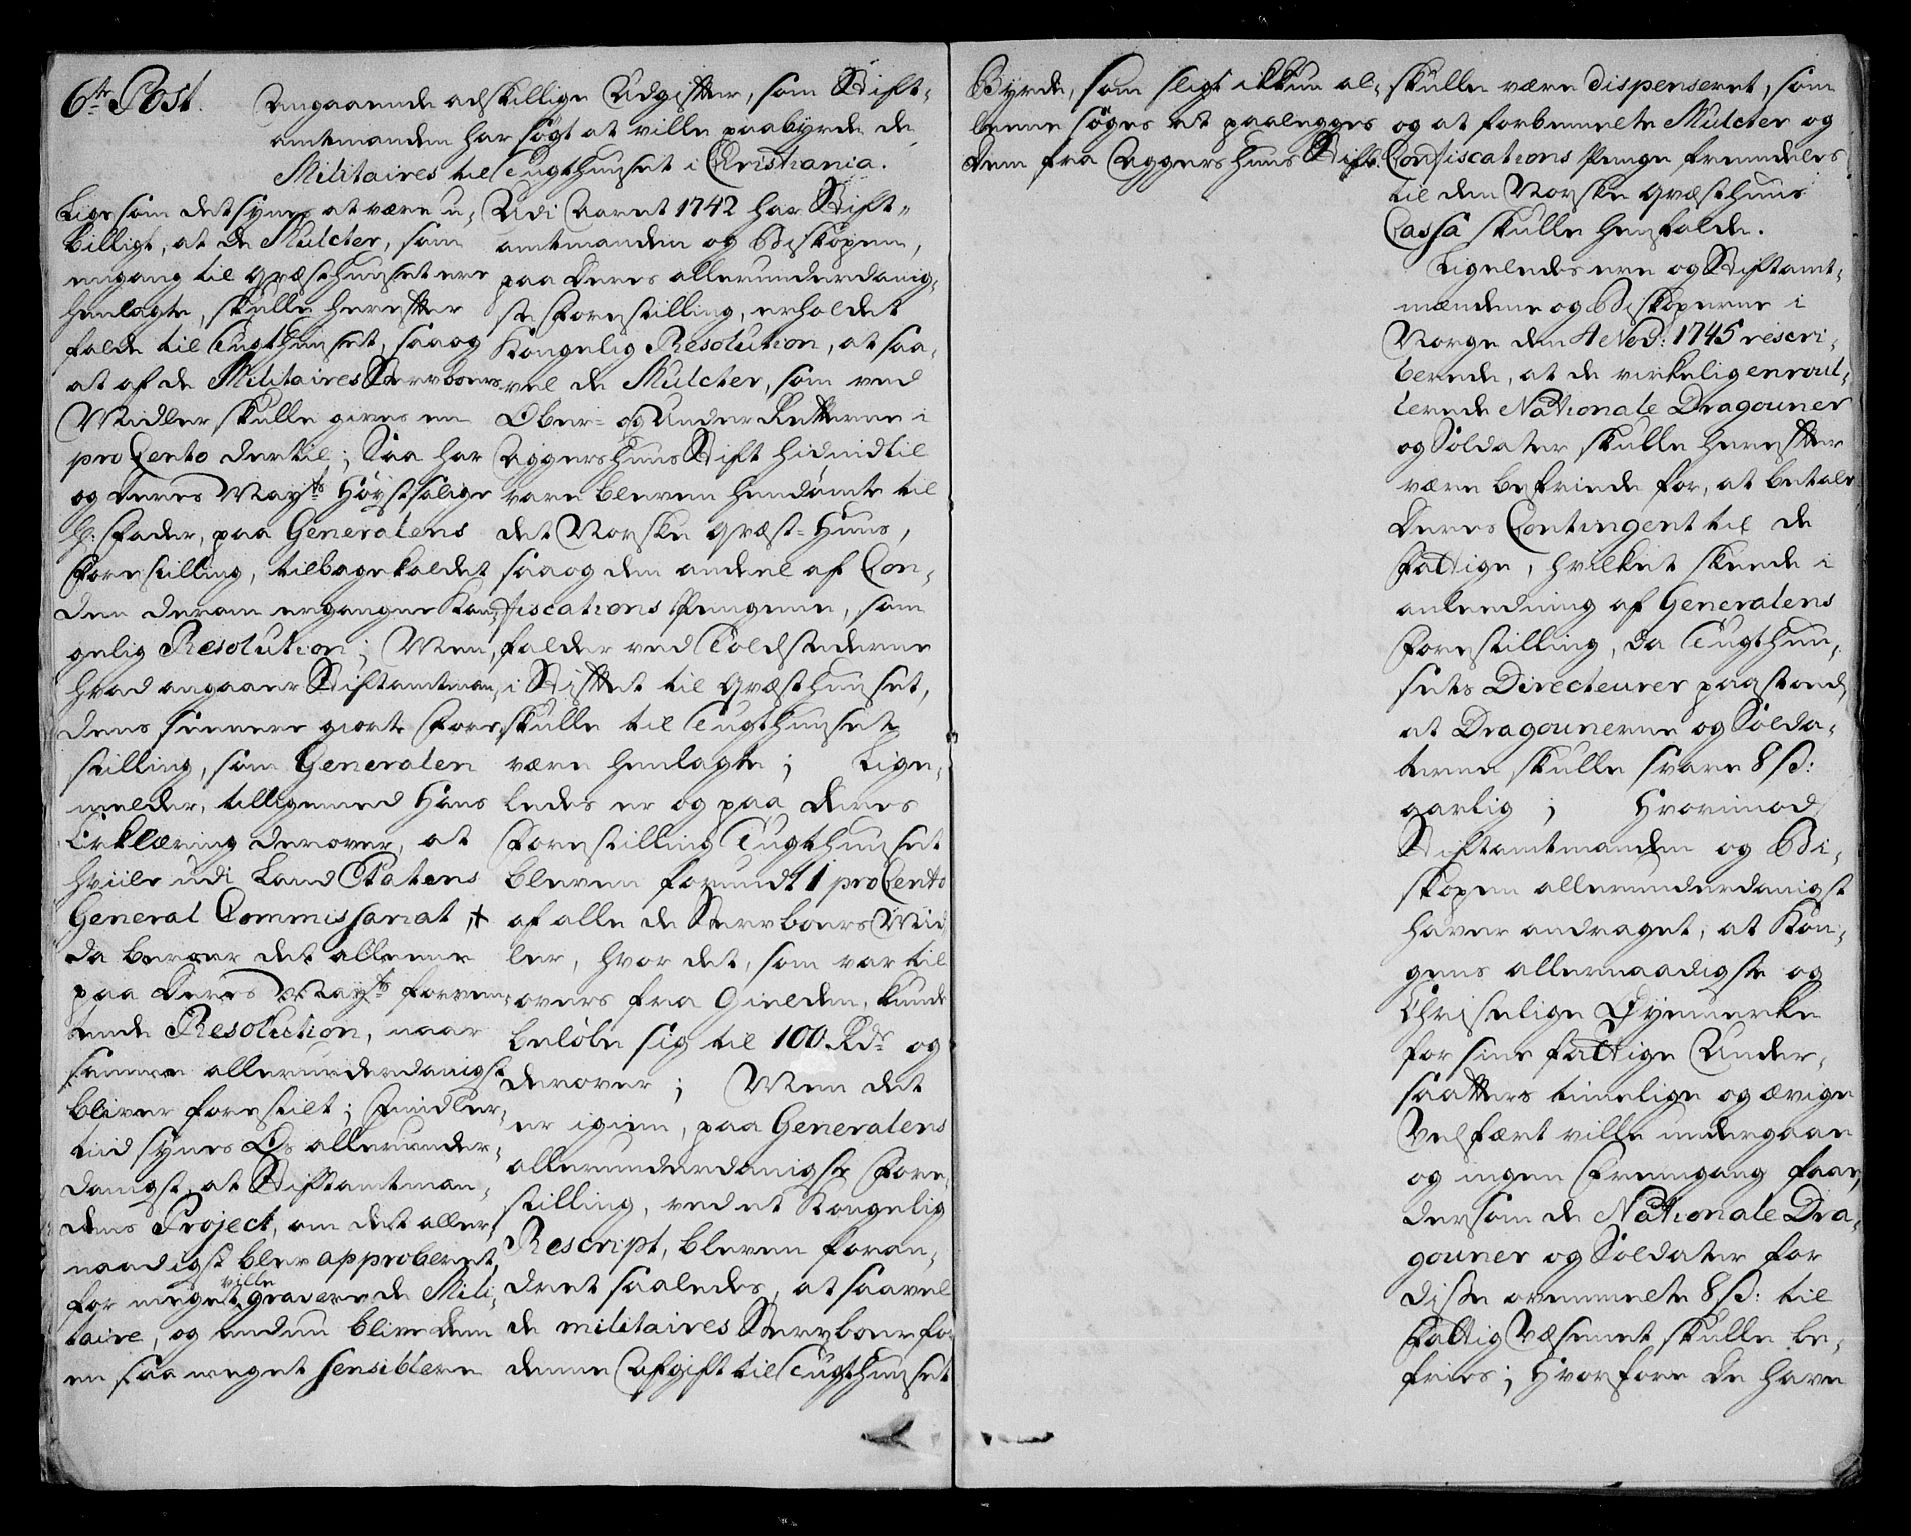 6te Post.
Angaaende adskillige Udgifter, som Stift-
amtmanden har søgt at ville paabyrde de
Militaires til Tugthuuset i Christiania.
Lige som det synes at være u-
billigt, at de Mulcter, som
engang til Qvæsthuuset ere
henlagte, skulle herefter
falde til Tugthuuset, saa og
at af de Militaires Sterboers
Midler skulle gives en
pro Cento dertil; Saa har
og Deres Mayts Høystsalige
H: Fader, paa Generalens
Forestilling, tilbagekaldet
den derom ergangne Kon-
gelig Resolution; Men,
hvad angaaer Stiftamtman-
dens sennere giorte Fore-
stilling, som Generalen
melder, tilligemed Hans
Erklæring derover, at
hviile udi Land Etatens
General Commissariat,
da beroer det alleene
paa Deres Mayts forven-
tende Resolution, naar
samme allerunderdanigst
bliver forestilt; Imidler-
tiid synes Os allerunder-
danigst, at Stiftamtman-
dens Project, om det aller-
naadigst blev approberet,
for meget ville gravere de Mili-
taire, og endeu blive dem
en saa meget sensiblere
Udi Aaret 1742 har Stift-
amtmanden og Biskopen,
paa Deres allerunderdanig-
ste Forestilling, erholdet
Kongelig Resolution, at saa-
vel de Mulcter, som ved
Ober- og Under Retterne i
Aggershuus Stift hidindtil
vare bleven hendømte til
det Norske Qvæst-Huus,
saa og den andeel af Con-
fiscations Pengene, som
falder ved Toldstederne
i Stiftet til Qvæsthuuset,
skulle til Tugthuuset
være henlagte; Lige-
ledes er og paa deres
Forestilling Tugthuuset
bleven forundt 1 pro Cento
af alle de Sterboers Mid-
ler, hvor det, som var til
overs fra Gielden, kunde
beløbe sig til 100 Rdr og
derover; Men det
er igien, paa Generalens
allerunderdanigste Fore-
stilling, ved et Kongelig
Rescript, bleven foran-
dret saaledes, at saavel
de militaires Sterboer for
denne Afgift til Tugthuuset
Byrde, som sligt ikkun al-
leene søges at paalegges
dem fra Aggershuus Stift.
skulle være dispenseret, som
og at forbemelte Mulcter og
Confiscations Penge fremdeles
til den Norske Qvæsthuus
Cassa skulle henfalde.
Ligeledes ere og Stiftamt-
mændene og Biskoperne i
Norge den 4 Nov: 1745 rescri-
berede, at de virkelig enroul-
lerede Nationale Dragouner
og Soldater skulle herefter
være befriede for, at betale
Deres Contingent til de
Fattige, hvilket skeede i
anleedning af Generalens
Forestilling, da Tugthuu-
sets Directeurer paastoed,
at Dragounerne og Solda-
terne skulle svare 8 ß:
aarlig; Hvorimod
Stiftamtmanden og Bi-
skopen allerunderdanigst
haver andraget, at Kon-
gens allernaadigste og
Christelige Øyemerke
for sine fattige Under-
saatters timelige og ævige
Velfært ville undergaae
og ingen Fremgang faae,
dersom de Nationale Dra-
gouner og Soldater for
disse ovenmelte 8 ß: til
Fattig Væsenet skulle be-
fries; Hvorfore de have